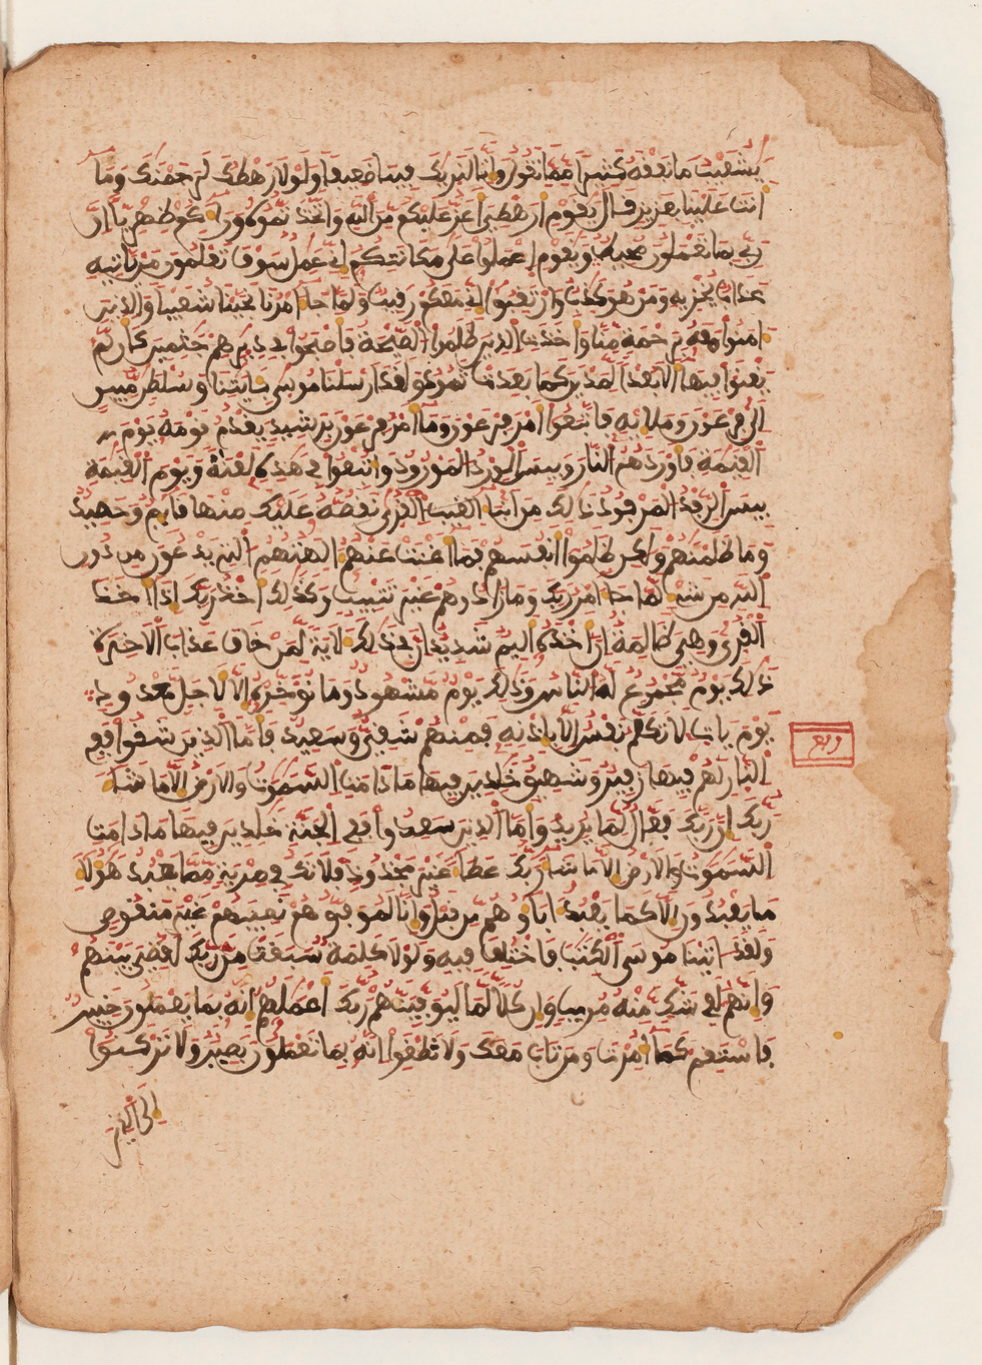 يشعيب ما نفقه كثيرا مما تقول وانا لنريك فينا ضعيفا ولولا رهطك لرجمنك وما
انت علينا بعزيز قال يقوم ارهطي اعز عليكم من الله واتخذتموه وراءكم ظهريا ان
ربي بما تعملون محيط ويقوم اعملوا على مكانتكم اني عمل سوف تعلمون من ياتيه
عذاب يخزيه ومن هو كذب وارتقبوا اني معكم رقيب ولما جا امرنا نجينا شعيبا والذين
امنوا معه برحمة منا واخذت الذين ظلموا الصيحة فاصبحوا في ديرهم جثمين كان لم
يغنوا فيها الا بعدا لمدين كما بعدت ثمود ولقد ارسلنا موسى بايتنا وسلطن مبين
الى فرعون وملايه فاتبعوا امر فرعون وما امر فرعون برشيد يقدم قومه يوم
القيمة فاوردهم النار وبيس الورد المورود واتبعوا في هذه لعنة ويوم القيمة
بيس الرفد المرفود ذلك من انبا القرى نقصه عليك منها قايم وحصيد
وما ظلمنهم ولكن ظلموا انفسهم فما اغنت عنهم الهتهم التي يدعون من دون
الله من شي لما جا امر ربك وما زادوهم غير تتبيب وكذلك اخذ ربك اذا اخذ
القرى وهي ظالمة ان اخذه اليم شديد ان في ذلك لاية لمن خاف عذاب الاخرة
ذلك يوم مجموع له الناس وذلك يوم مشهود وما نوخره الا لاجل معدود
يوم يات لا تكلم نفس الا باذنه فمنهم شقي وسعيد فاما الذين شقوا ففي
النار لهم فيها زفير وشهيق خلدين فيها ما دامت السموت والارض الا ما شا
ربك ان ربك فعال لما يريد واما الذين سعدوا ففي الجنة خلدين فيها ما دامت
السموت والارض الا ما شا ربك عطا غير مجذوذ فلا تك في مرية مما يعبد هولا
ما يعبدون الا كما يعبد اباوهم من قبل وانا لموفوهم نصيبهم غير منقوص
ولقد اتينا موسى الكتب فاختلف فيه ولولا كلمة سبقت من ربك لقضي بينهم
وانهم لفي شك منه مريب وان كلا لما ليوفينهم ربك اعملهم انه بما يعملون خبير
فاستقم كما امرت ومن تاب معك ولا تطغوا انه بما تعملون بصير ولا تركنوا
الى الذين
ربع